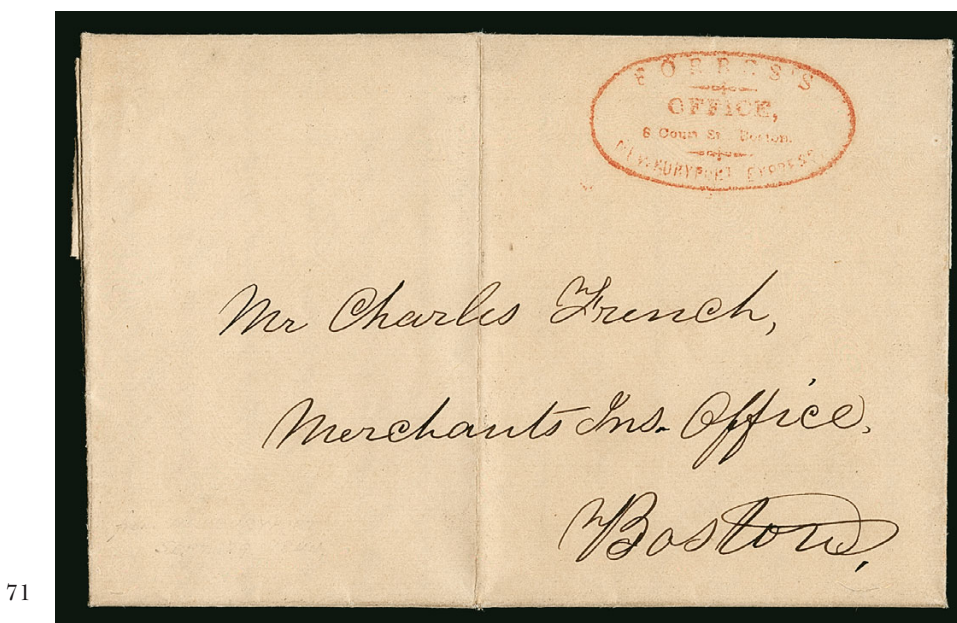 FORBES'S
OFFICE,
8 Court St. Boston.
NEWBURYPORT EXPRESS
Mr Charles French,
Merchants Ins. Office,
Boston,
71